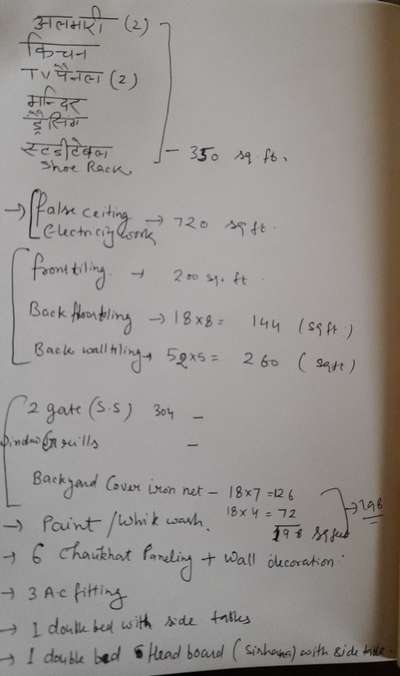 अलमारी (2)
किचन
TV पैनल (2)
मन्दिर
ड्रैसिंग
स्टडीटेबल
Shoe Rack
- 350 sq.ft.
→ false ceiling
Electricity work → 720 sqft.
front tiling → 200 sq. ft
Back floor tiling → 18x8 = 144 (sqft)
Back wall tiling → 52x5 = 260 (sqft)
2 gate (S.S) 304 -
window Grills -
Backyard Cover iron net - 18x7 = 126
18x4 = 72
198 → 198
→ Paint / White wash.
→ 6 Chaukhat Paneling + Wall decoration.
→ 3 A.c fitting
→ 1 double bed with side tables
→ 1 double bed Headboard (Sirhana) with side table.